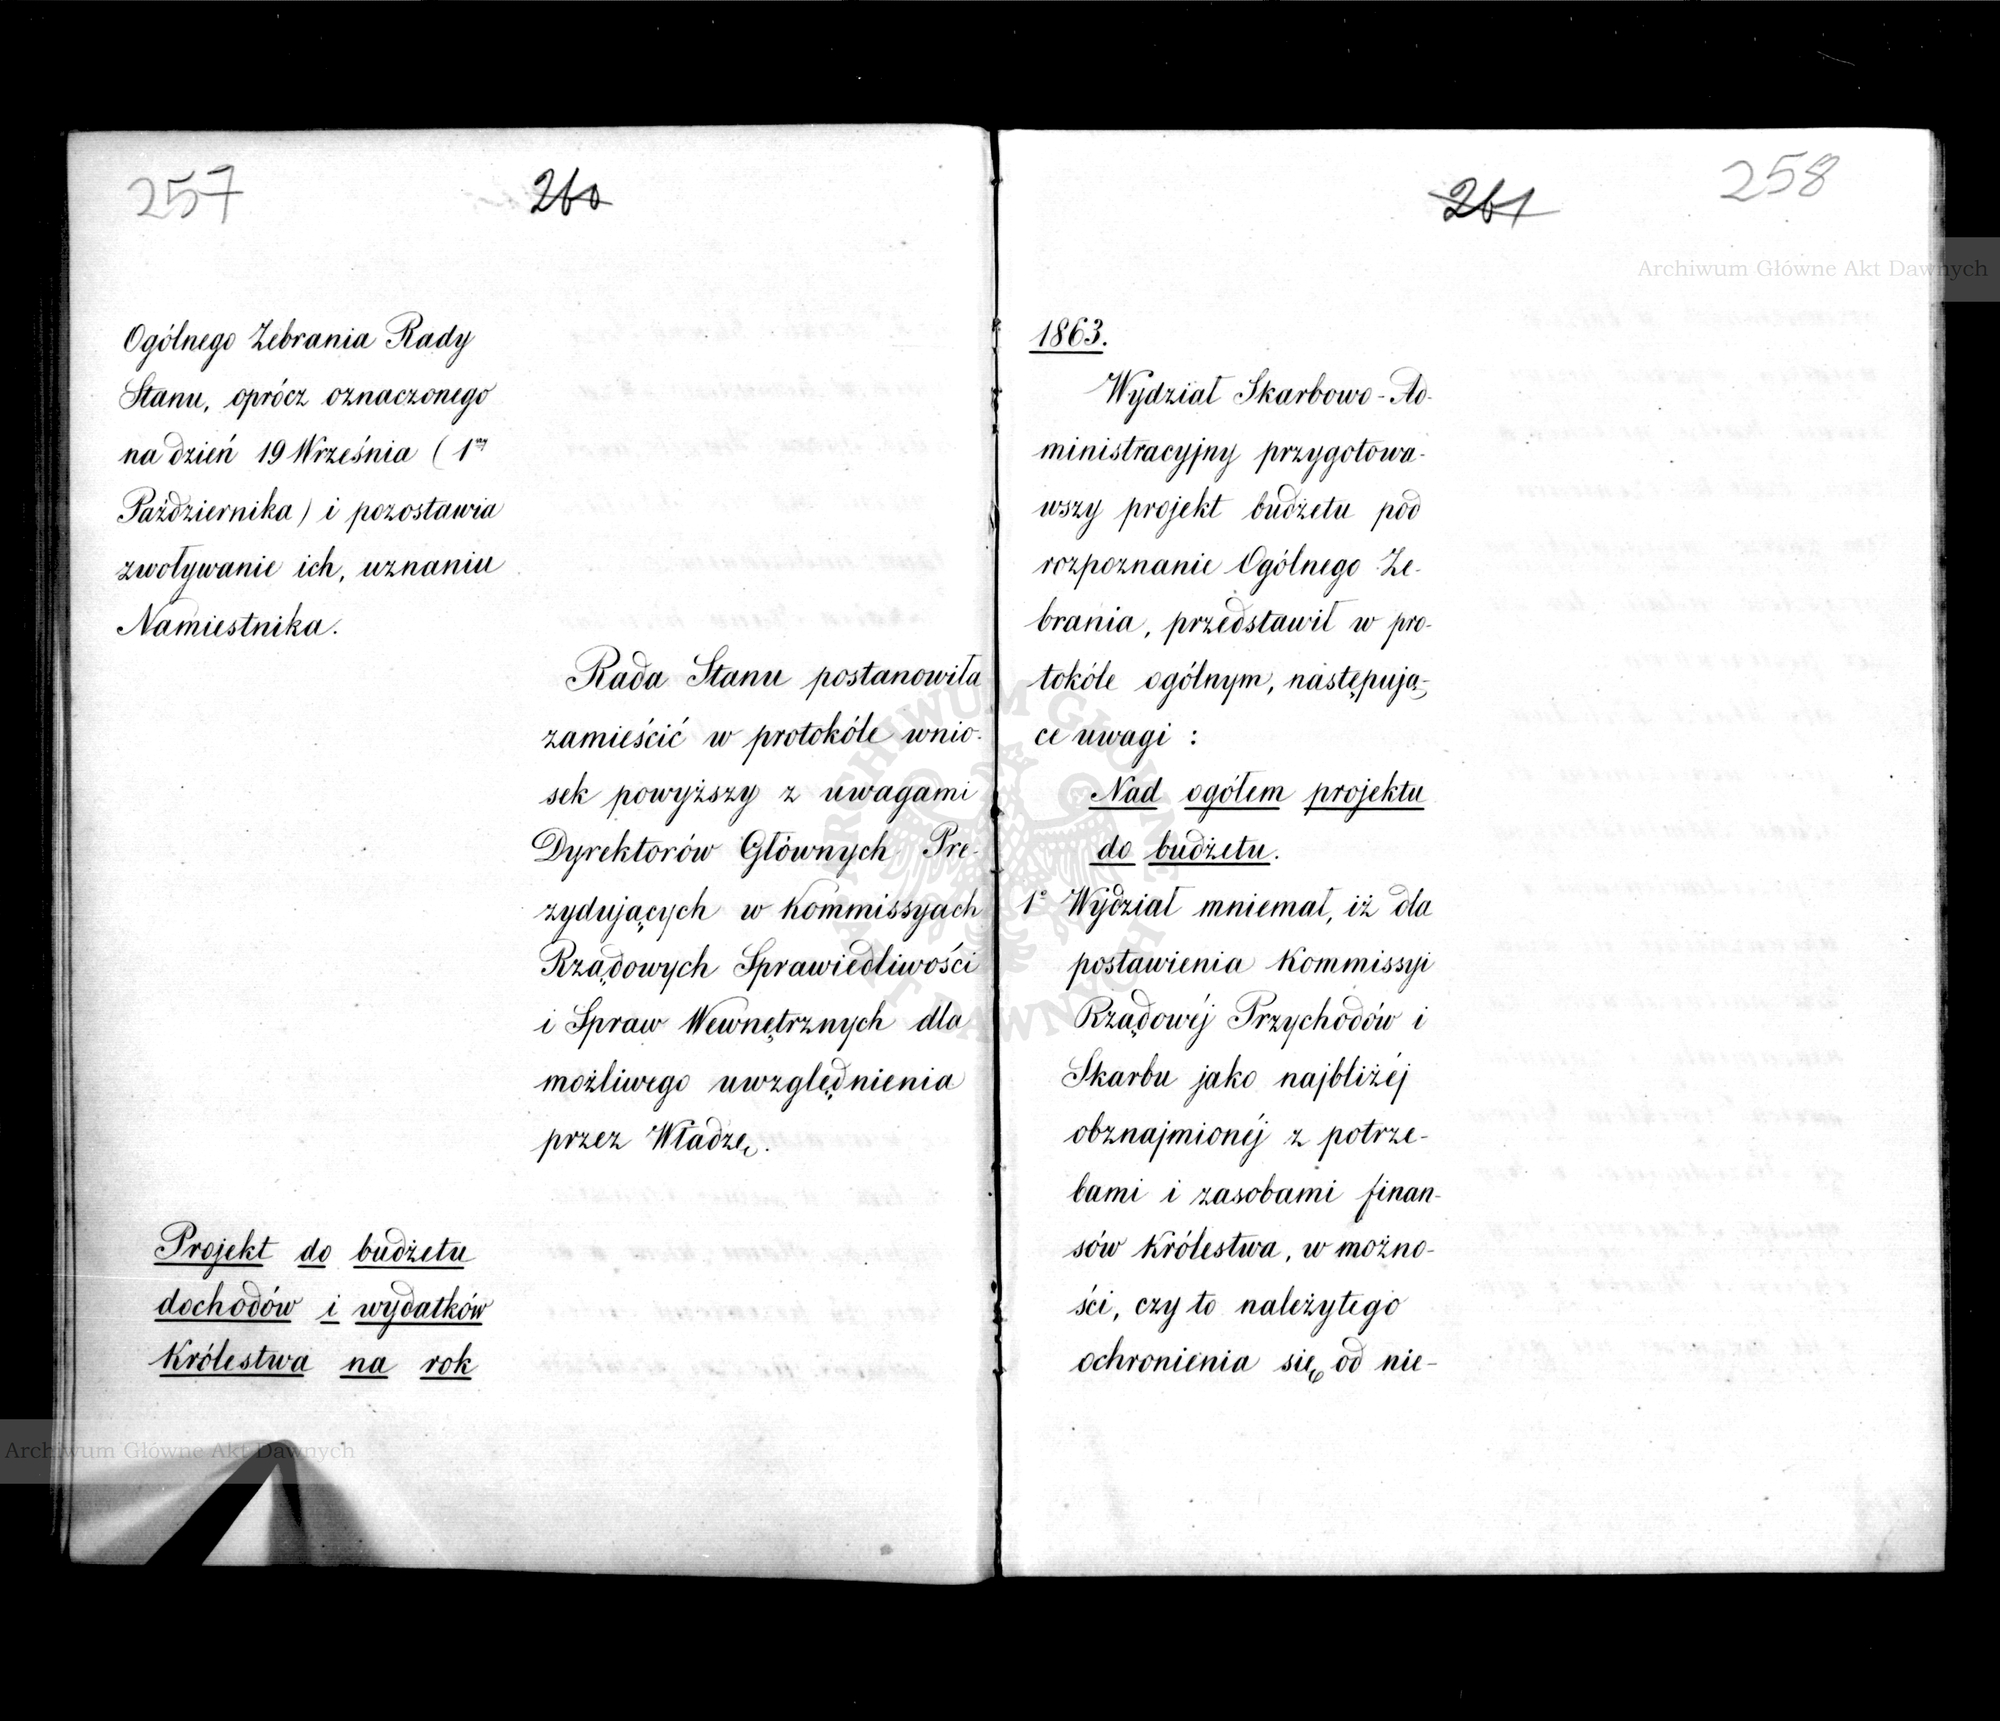 257
260
Ogólnego Zebrania Rady
Stanu, oprócz oznaczonego
na dzień 19 Września (1ny
Października) i pozostawia
zwoływanie ich, uznaniu
Namiestnika.
Rada Stanu postanowiła
zamieścić w protokóle wnio-
sek powyższy z uwagami
Dyrektorów Głównych Pre-
zydujących w Kommissyach
Rządowych Sprawiedliwości
i Spraw Wewnętrznych dla
możliwego uwzględnienia
przez Władzę.
Projekt do budżetu
dochodów i wydatków
Królestwa na rok
Archiwum Główne Akt Dawnych
261
258
Archiwum Główne Akt Dawnych
1863.
Wydział Skarbowo-Ad-
ministracyjny przygotowa-
wszy projekt budżetu pod
rozpoznanie Ogólnego Ze-
brania, przedstawił w pro-
tokóle ogólnym, następują-
ce uwagi :
Nad ogółem projektu
do budżetu.
1° Wydział mniemał, iż dla
postawienia Kommissyi
Rządowéj Przychodów i
Skarbu jako najbliżéj
obznajmionéj z potrze-
bami i zasobami finan-
sów Królestwa, w możno-
ści, czy to należytego
ochronienia się od nie-
ARCHIWUM GŁÓWNE AKT DAWNYCH